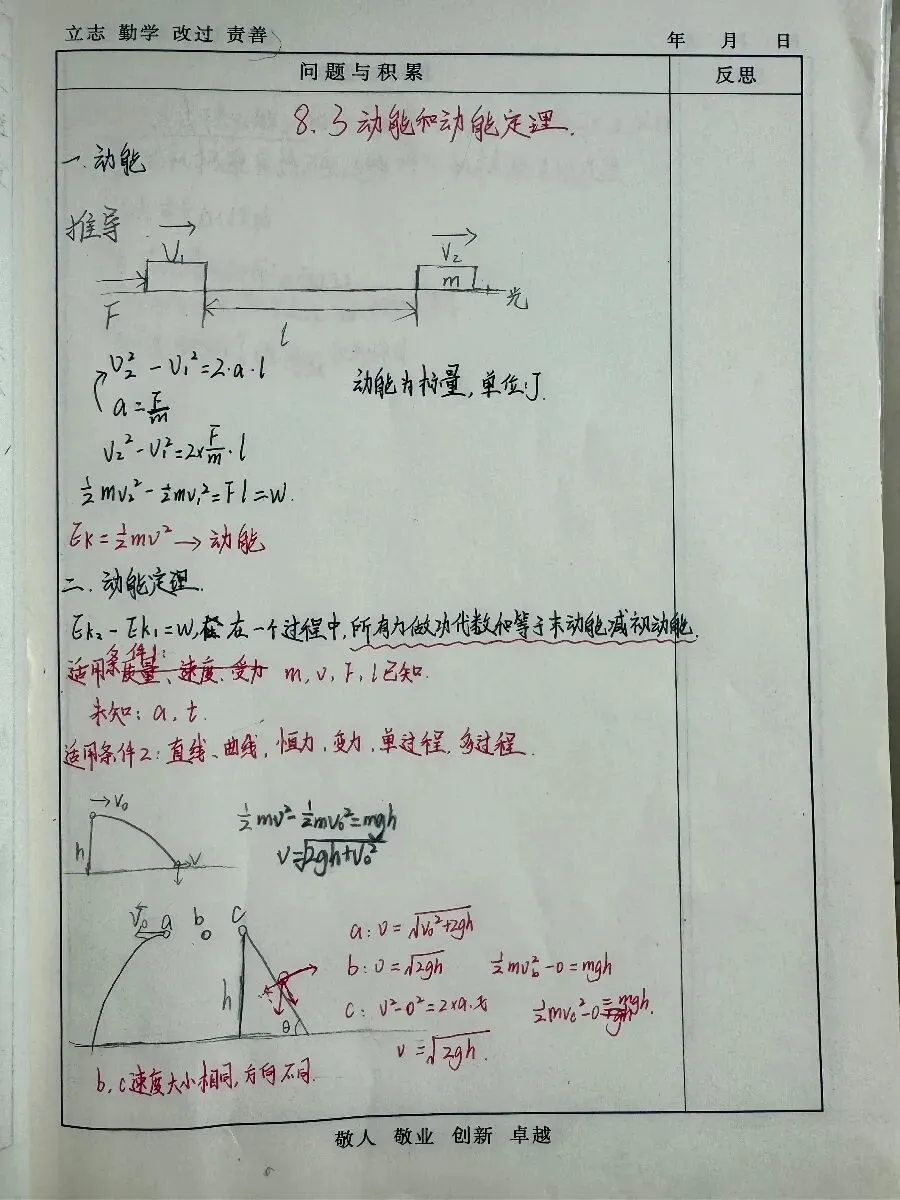 立志 勤学 改过 责善
年 月 日
问题与积累
反思
8.3动能和动能定理.
一.动能
推导
V₁
V₂
m
F
光
l
V₂² - V₁² = 2·a·l
动能为标量,单位:J.
a = F/m
V₂² - V₁² = 2×F/m·l
½mv₂² - ½mv₁² = Fl = W.
Ek = ½mv² → 动能
二.动能定理.
Ek₂ - Ek₁ = W,在一个过程中,所有力做功代数和等于末动能减初动能.
适用条件1: 质量、速度、受力 m,v,F,l已知.
未知: a,t.
适用条件2: 直线、曲线,恒力,变力,单过程,多过程.
V₀
h
V
½mv² - ½mv₀² = mgh
V = √2gh+V₀²
V₀ a b c
h
θ
a: v = √V₀²+2gh
b: v = √2gh ½mv_b² - 0 = mgh
c: V² - 0² = 2×a·x ½mv_c² - 0 = mgh.
v = √2gh.
b,c速度大小相同,方向不同.
敬人 敬业 创新 卓越